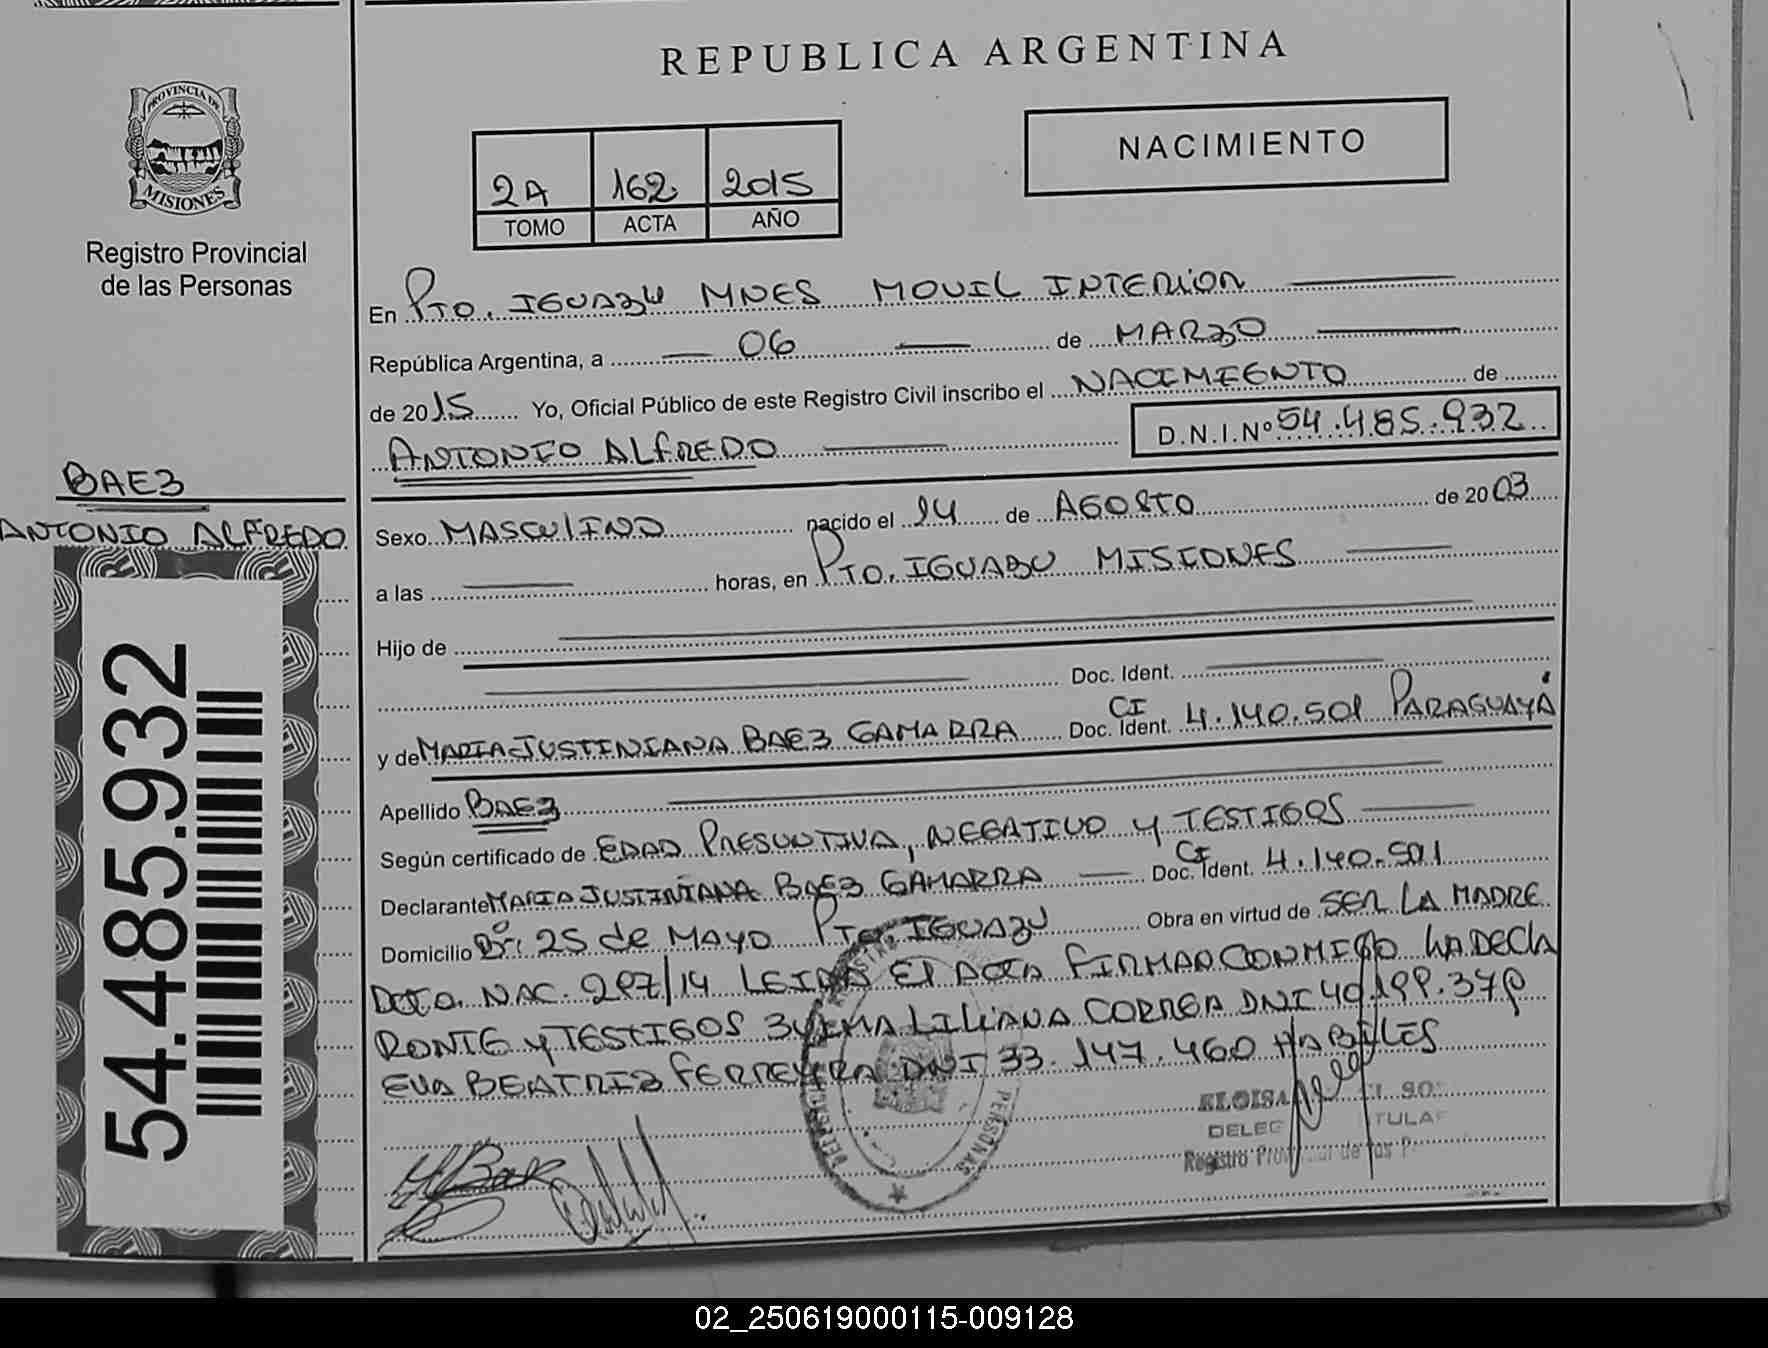 REPUBLICA ARGENTINA
PROVINCIA DE
MISIONES
Registro Provincial
de las Personas
NACIMIENTO
2A 162 2015
TOMO ACTA AÑO
En PTO. IGUAZU MNES MOVIL INTERIOR
República Argentina, a 06 de MARZO
de 2015 Yo, Oficial Público de este Registro Civil inscribo el NACIMIENTO de
ANTONIO ALFREDO D.N.I.Nº 54.485.932
BAEZ
ANTONIO ALFREDO
54.485.932
Sexo MASCULINO nacido el 14 de AGOSTO de 2003
a las horas, en PTO. IGUAZU MISIONES
Hijo de
Doc. Ident.
y de MARIA JUSTINIANA BAEZ GAMARRA CI Doc. Ident. 4.140.501 PARAGUAYA
Apellido BAEZ
Según certificado de EDAD PRESUNTIVA, NEGATIVO Y TESTIGOS
Declarante MARIA JUSTINIANA BAEZ GAMARRA CI Doc. Ident. 4.140.501
Domicilio Bº: 25 de MAYO PTO. IGUAZU Obra en virtud de SER LA MADRE
DCTO. NAC. 297/14 LEIDA EL ACTA FIRMAN CONMIGO LA DECLA
RANTE Y TESTIGOS ZULEMA LILIANA CORREA DNI 40.199.379
EVA BEATRIZ FERREYRA DNI 33.147.460 HABILES
ELOISA
DELEG TULA
Registro Provincial de las P
PERSONAS
02_250619000115-009128